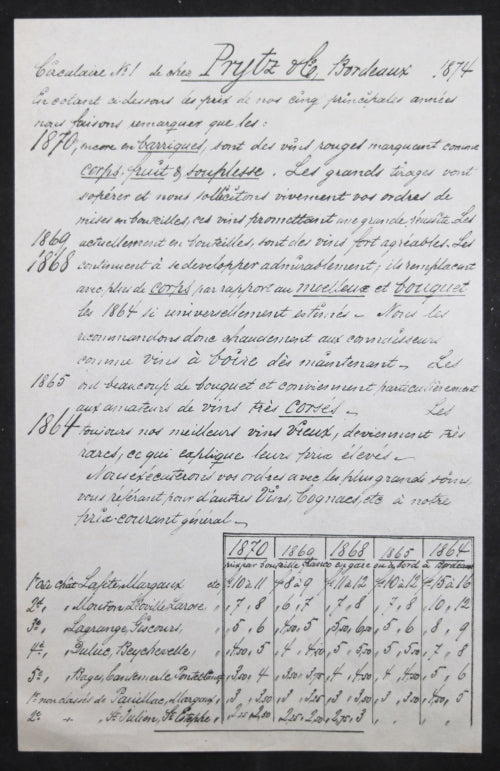 Circulaire No 1 de chez Prytz & Co, Bordeaux 1874
En cotant ci-dessous les prix de nos cinq principales années
nous faisons remarquer que les:
1870, encore en barriques, sont des vins rouges marquant comme
corps, fruit & souplesse. Les grands tirages vont
s'opérer et nous sollicitons vivement vos ordres de
mises en bouteilles, ces vins promettant une grande réussite. Les
1869, actuellement en bouteilles, sont des vins fort agréables. Les
1868 continuent à se developper admirablement; ils remplacent
avec plus de corps par rapport au moelleux et bouquet
les 1864 si universellement estimés - Nous les
recommandons donc chaudement aux connaisseurs
comme vins à boire dès maintenant - Les
1865 ont beaucoup de bouquet et conviennent particulièrement
aux amateurs de vins très corsés - Les
1864 toujours nos meilleurs vins vieux, deviennent très
rares, ce qui explique leurs prix élevés -
Nous exécuterons vos ordres avec les plus grands soins,
vous référant pour d'autres Vins, Cognacs, etc à notre
prix-courant général -
1870 1869 1868 1865 1864
prix par bouteille franco en gare ou à bord à Bordeaux
1ers crûs Chât Lafite, Margaux etc 10 à 11 8 à 9 11 à 12 10 à 12 15 à 16
2e, " Mouton, Léoville, Larose, " 7, 8 6, 7 7, 8 7, 8 10, 12
3e, " Lagrange, Giscours, " 5, 6 4.50, 5 5.50, 6.50 5, 6 8, 9
4e, " Duluc, Beychevelle, " 4.50, 5 4, 4.50 5, 5.50 5, 5.50 7, 8
5e, " Bages, Cantemerle, Pontet Canet 3.50, 4 3.50, 3.75 4, 4.50 4, 4.50 5, 6
1ers non classés de Pauillac, Margaux, 3, 3.50 3, 3.25 3, 3.50 3, 3.50 4.50, 5
2e " " St Julien, St Estèphe, 2.25, 2.50 2.25, 2.50 2.75, 3